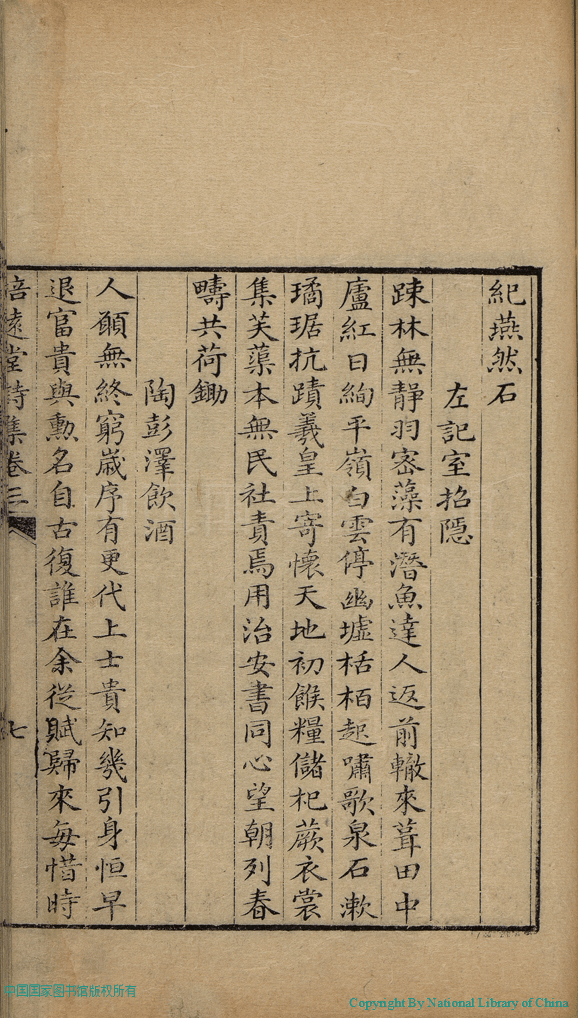 紀燕然石
左記室招隱
踈林無靜羽密藻有潛魚達人返前轍來葺田中
廬紅日絢平嶺白雲停幽墟栝栢起嘯歌泉石漱
璚琚抗蹟羲皇上寄懷天地初餱糧儲杞蕨衣裳
集芙蕖本無民社責焉用治安書同心望朝列春
疇共荷鋤
陶彭澤飲酒
人願無終窮歲序有更代上士貴知幾引身恒早
退富貴與勳名自古復誰在余從賦歸來每惜時
培遠堂詩集卷三
七
中国国家图书馆版权所有
Copyright By National Library of China